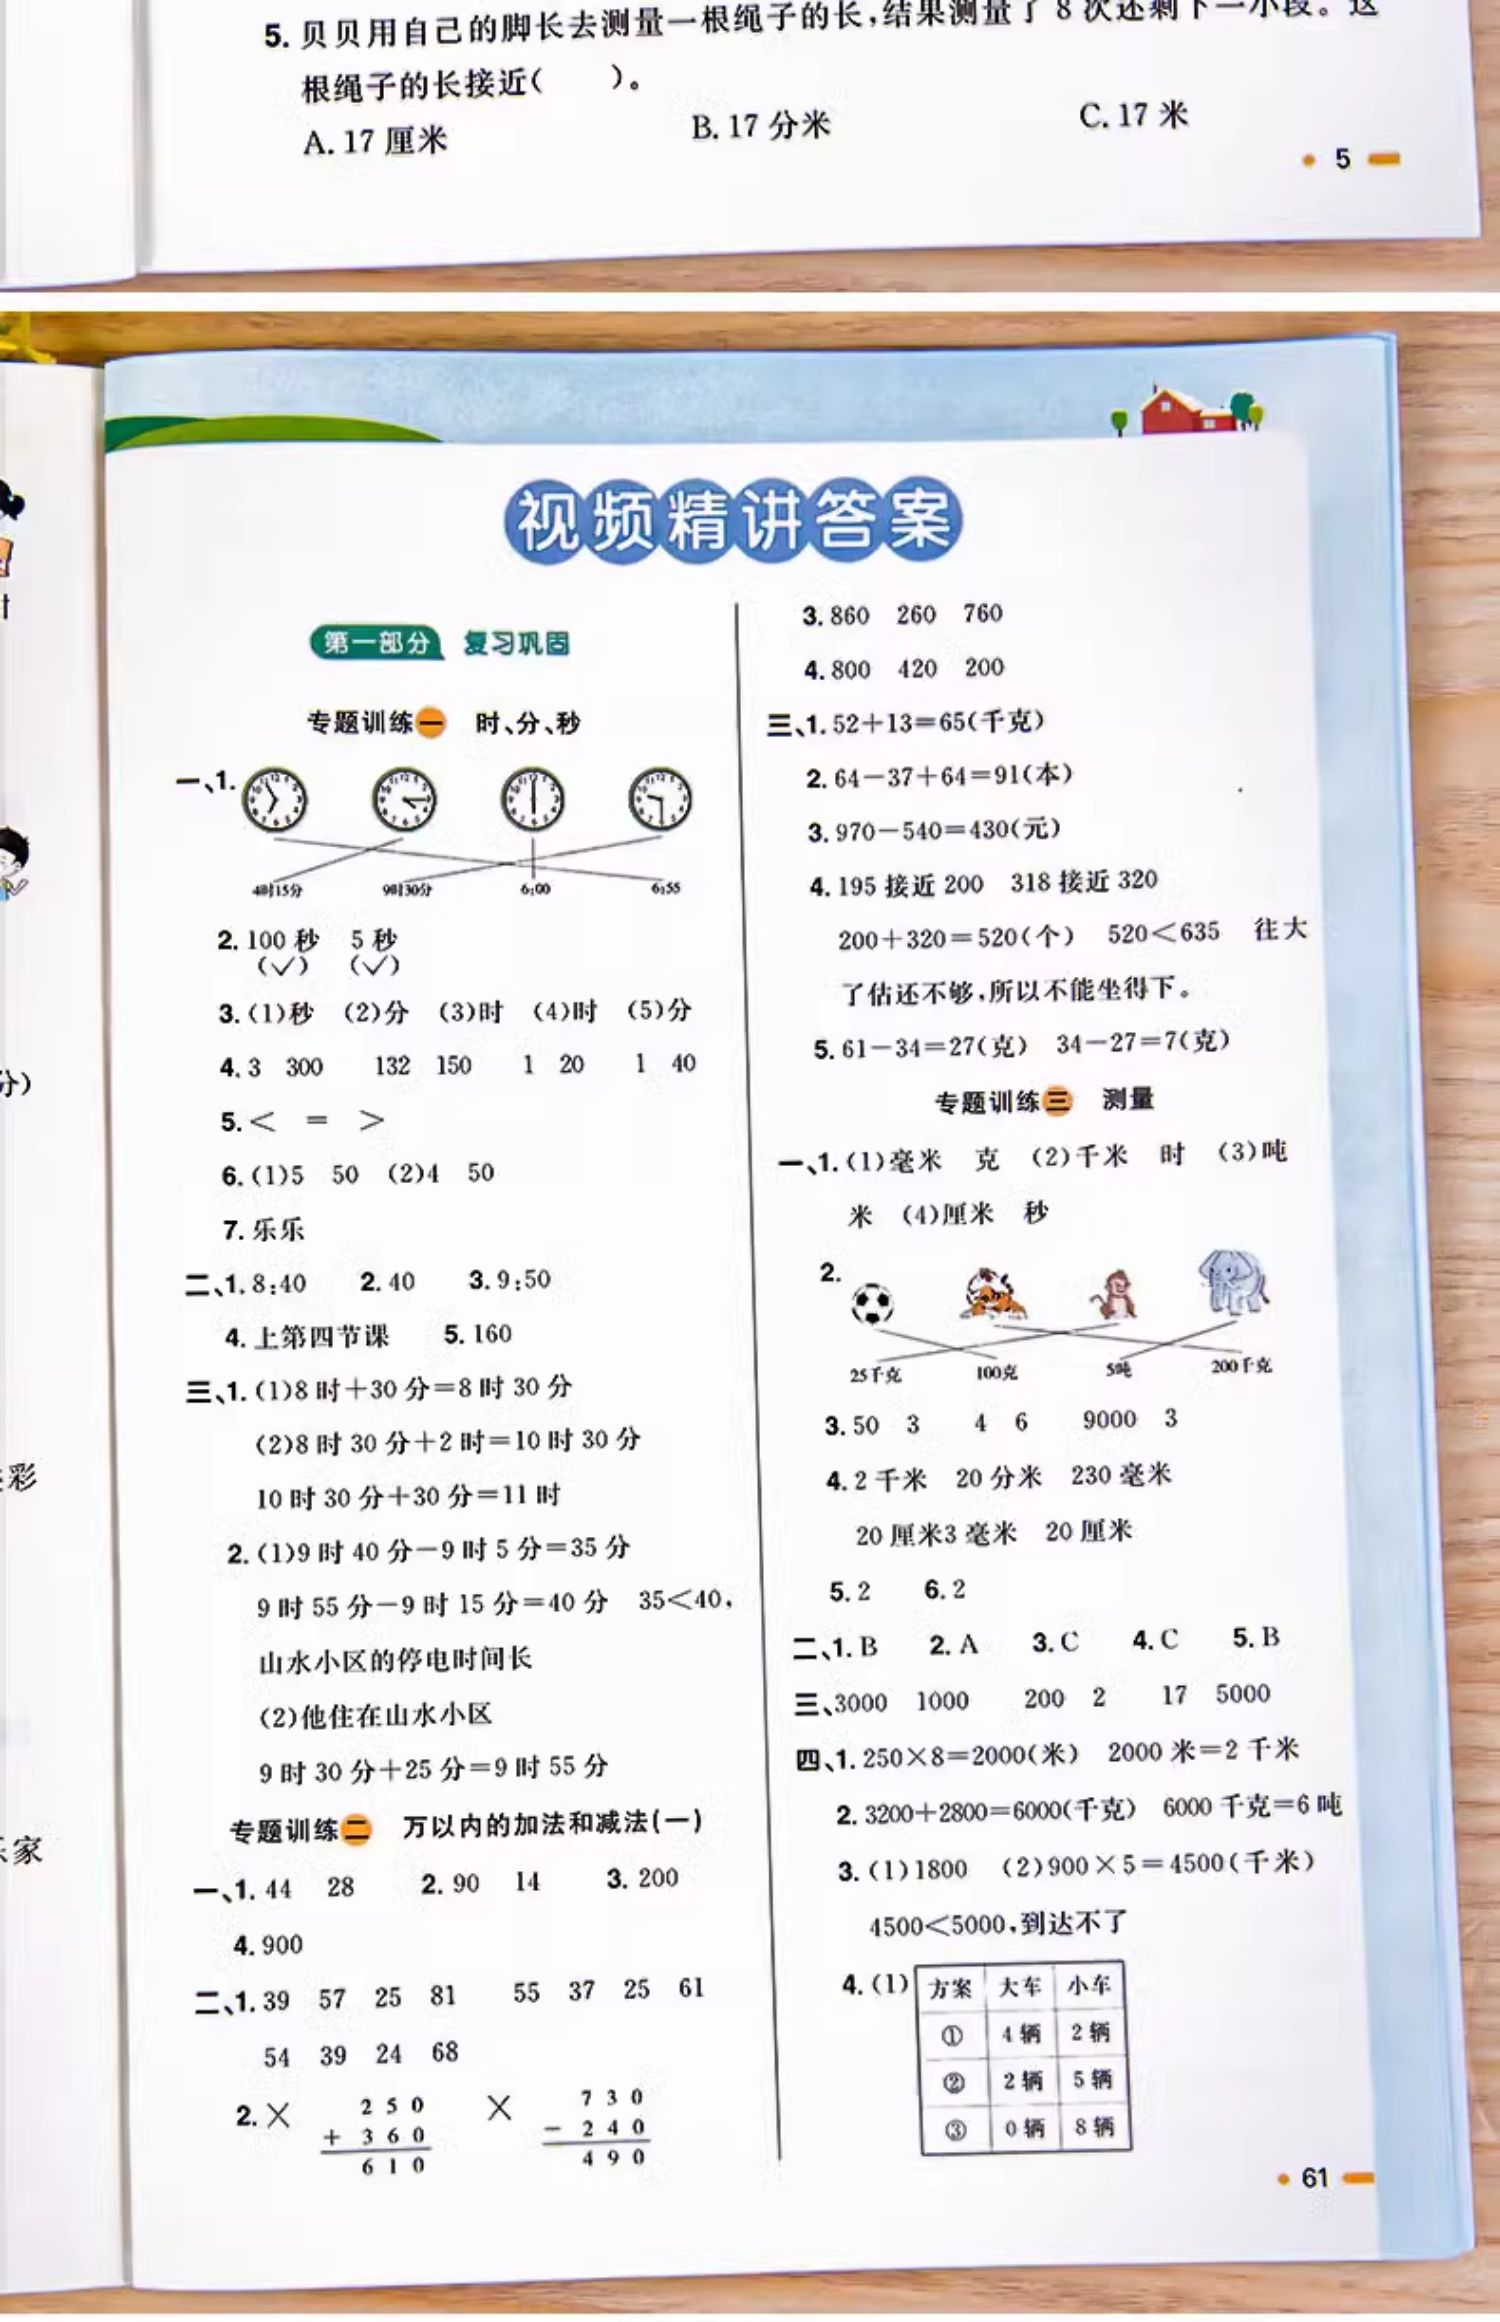 5. 贝贝用自己的脚长去测量一根绳子的长,结果测量了 8 次还剩下一小段。这
根绳子的长接近(　　)。
A. 17 厘米　B. 17 分米　C. 17 米
5
视频精讲答案
第一部分 复习巩固
专题训练一 时、分、秒
一、1.
4时15分 9时30分 6:00 6:55
2. 100 秒 5 秒
(✓) (✓)
3. (1)秒 (2)分 (3)时 (4)时 (5)分
4. 3 300 132 150 1 20 1 40
5. < = >
6. (1)5 50 (2)4 50
7. 乐乐
二、1. 8:40 2. 40 3. 9:50
4. 上第四节课 5. 160
三、1. (1)8 时+30 分=8 时 30 分
(2)8 时 30 分+2 时=10 时 30 分
10 时 30 分+30 分=11 时
2. (1)9 时 40 分-9 时 5 分=35 分
9 时 55 分-9 时 15 分=40 分 35<40,
山水小区的停电时间长
(2)他住在山水小区
9 时 30 分+25 分=9 时 55 分
专题训练二 万以内的加法和减法(一)
一、1. 44 28 2. 90 14 3. 200
4. 900
二、1. 39 57 25 81 55 37 25 61
54 39 24 68
2. × 2 5 0 × 7 3 0
+ 3 6 0 - 2 4 0
6 1 0 4 9 0
3. 860 260 760
4. 800 420 200
三、1. 52+13=65(千克)
2. 64-37+64=91(本)
3. 970-540=430(元)
4. 195 接近 200 318 接近 320
200+320=520(个) 520<635 往大
了估还不够,所以不能坐得下。
5. 61-34=27(克) 34-27=7(克)
专题训练三 测量
一、1. (1)毫米 克 (2)千米 时 (3)吨
米 (4)厘米 秒
2.
25千克 100克 5吨 200千克
3. 50 3 4 6 9000 3
4. 2 千米 20 分米 230 毫米
20 厘米3 毫米 20 厘米
5. 2 6. 2
二、1. B 2. A 3. C 4. C 5. B
三、3000 1000 200 2 17 5000
四、1. 250×8=2000(米) 2000 米=2 千米
2. 3200+2800=6000(千克) 6000 千克=6 吨
3. (1)1800 (2)900×5=4500(千米)
4500<5000,到达不了
4. (1) 方案 大车 小车
① 4 辆 2 辆
② 2 辆 5 辆
③ 0 辆 8 辆
61
分)
彩
家